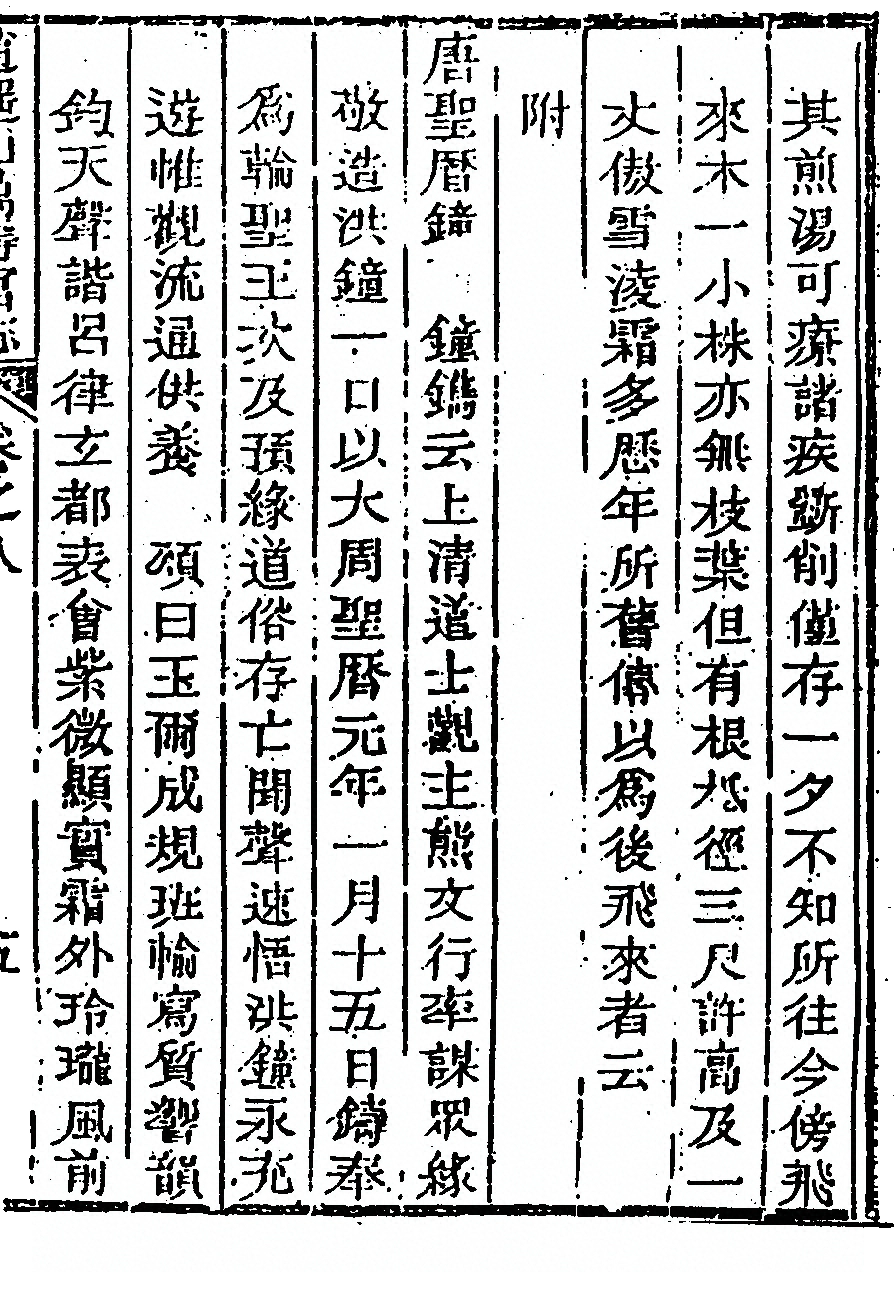 其煎湯可療諸疾斲削僅存一夕不知所往今傍飛
來木一小株亦無枝葉但有根柢徑三尺許高及一
丈傲雪淩霜多歷年所舊傳以爲後飛來者云
附
唐聖曆鐘　鐘鐫云上清道士觀主熊文行率謀眾緣
敬造洪鐘一口以大周聖曆元年一月十五日鑄奉
爲輪聖王次及預緣道俗存亡聞聲速悟洪鐘永充
遊帷觀流通供養　頌曰玉爾成規班輸寫質響韻
鈞天聲諧呂律立都表會紫微顯實霜外玲瓏風前
逍遙山萬壽宮志　卷之八　五